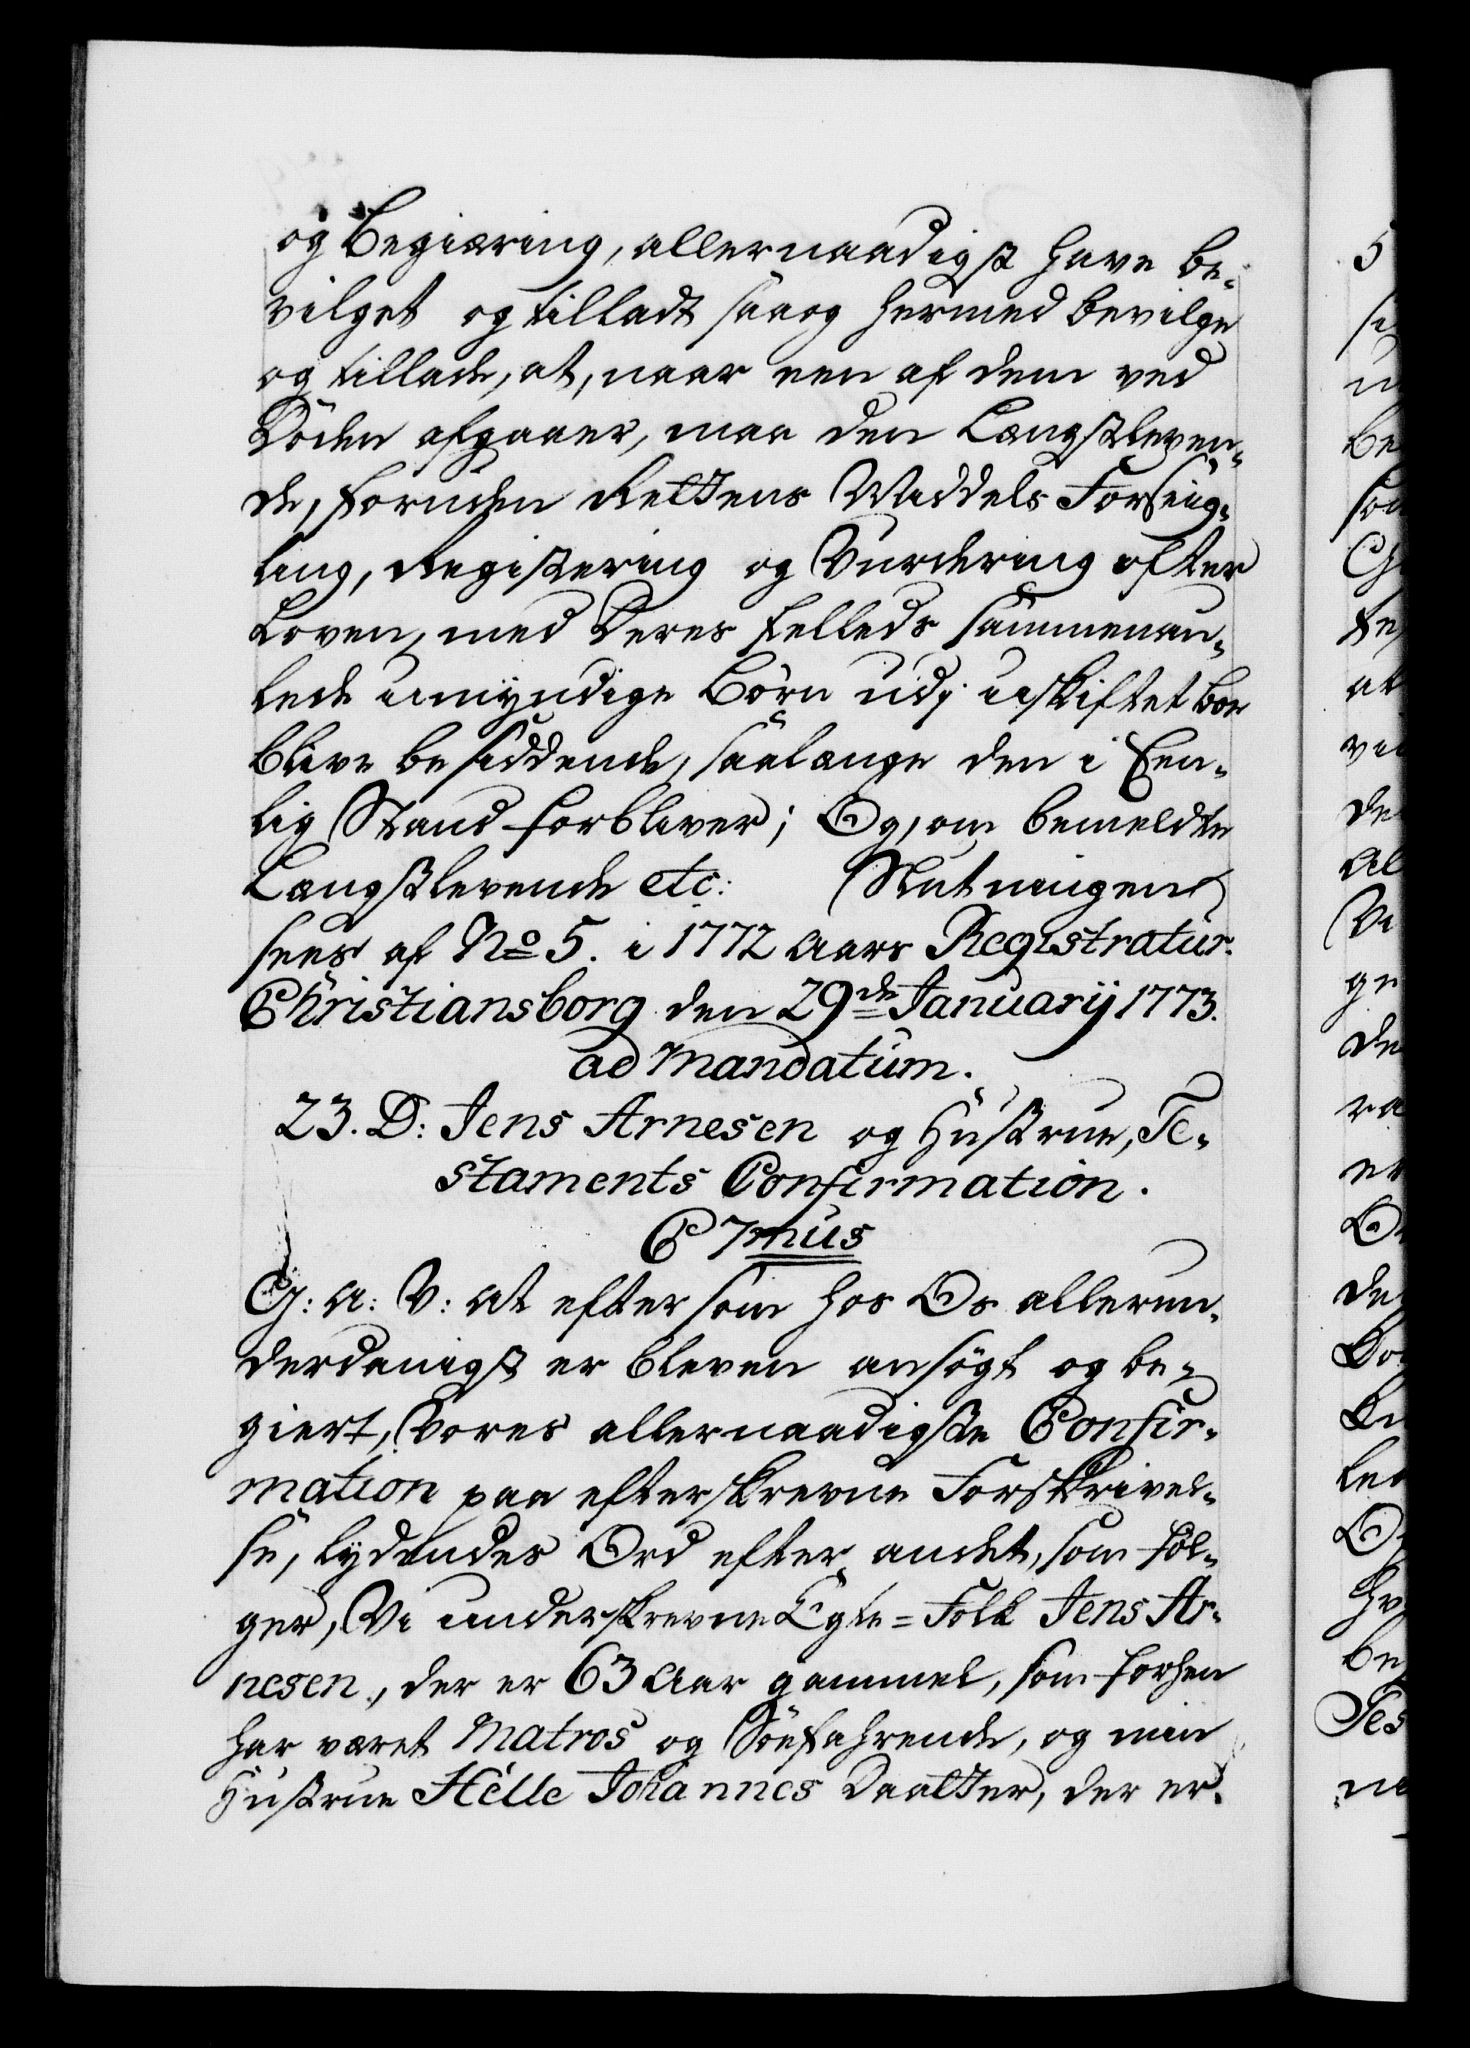 og Begiæring, allernaadigst have be-
vilget og tilladt saa og hermed bevilge
og tillade, at, naar een af dem ved
Døden afgaaer, maa den Længstleven-
de, foruden Rettens Middels Forseig-
ling, Registering og Vurdering efter
Loven, med Deres felleds sammenau-
lede umyndige Børn udj uskiftet boe
blive besiddende, saalænge den i Een-
lig Stand forbliver; Og, om bemeldte
Længstlevende etc: Slutningen
sees af No 5. i 1772 Aars Registratur.
Christiansborg den 29de Januarij 1773.
ad Mandatum.
23. D: Jens Arnesen og Hustrue, Te-
staments Confirmation.
C 7mus
G: A: V: At eftersom hos Os allerun-
derdanigst er bleven ansøgt og be-
giert, Vores allernaadigste Confir-
mation paa efterskrevne Forskrivel-
se, lydendes Ord efter andet, som føl-
ger, Vi underskrevne Egte=Folk Jens Ar-
nesen, der er 63 Aar gammel, som forhen
har været Matros og Søefahrende, og min
Hustrue Helle Johannes Daatter, der er